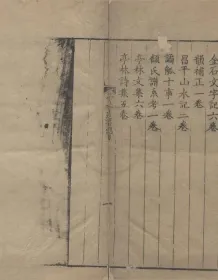 金石文字記六卷
韻補正一卷
昌平山水記二卷
譎觚十事一卷
顧氏譜系考一卷
亭林文集六卷
亭林詩集五卷